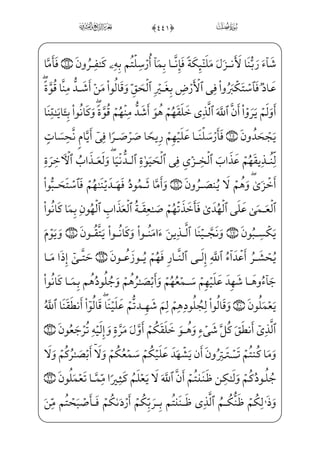 ﴿٤٤١﴾
شَآءَ رَبُّنَا لَأَنزَلَ مَلَـٰٓئِكَةً فَإِنَّا بِمَآ أُرْسِلْتُم بِهِۦ كَـٰفِرُونَ ۝ فَأَمَّا
عَادٌ فَٱسْتَكْبَرُوا۟ فِى ٱلْأَرْضِ بِغَيْرِ ٱلْحَقِّ وَقَالُوا۟ مَنْ أَشَدُّ مِنَّا قُوَّةً
أَوَلَمْ يَرَوْا۟ أَنَّ ٱللَّهَ ٱلَّذِى خَلَقَهُمْ هُوَ أَشَدُّ مِنْهُمْ قُوَّةً وَكَانُوا۟ بِـَٔايَـٰتِنَا
يَجْحَدُونَ ۝ فَأَرْسَلْنَا عَلَيْهِمْ رِيحًا صَرْصَرًا فِىٓ أَيَّامٍ نَّحِسَاتٍ
لِّنُذِيقَهُمْ عَذَابَ ٱلْخِزْىِ فِى ٱلْحَيَوٰةِ ٱلدُّنْيَا وَلَعَذَابُ ٱلْـَٔاخِرَةِ
أَخْزَىٰ وَهُمْ لَا يُنصَرُونَ ۝ وَأَمَّا ثَمُودُ فَهَدَيْنَـٰهُمْ فَٱسْتَحَبُّوا۟
ٱلْعَمَىٰ عَلَى ٱلْهُدَىٰ فَأَخَذَتْهُمْ صَـٰعِقَةُ ٱلْعَذَابِ ٱلْهُونِ بِمَا كَانُوا۟
يَكْسِبُونَ ۝ وَنَجَّيْنَا ٱلَّذِينَ ءَامَنُوا۟ وَكَانُوا۟ يَتَّقُونَ ۝ وَيَوْمَ
يُحْشَرُ أَعْدَآءُ ٱللَّهِ إِلَى ٱلنَّارِ فَهُمْ يُوزَعُونَ ۝ حَتَّىٰٓ إِذَا مَا
جَآءُوهَا شَهِدَ عَلَيْهِمْ سَمْعُهُمْ وَأَبْصَـٰرُهُمْ وَجُلُودُهُم بِمَا كَانُوا۟
يَعْمَلُونَ ۝ وَقَالُوا۟ لِجُلُودِهِمْ لِمَ شَهِدتُّمْ عَلَيْنَا قَالُوٓا۟ أَنطَقَنَا ٱللَّهُ
ٱلَّذِىٓ أَنطَقَ كُلَّ شَىْءٍ وَهُوَ خَلَقَكُمْ أَوَّلَ مَرَّةٍ وَإِلَيْهِ تُرْجَعُونَ ۝
وَمَا كُنتُمْ تَسْتَتِرُونَ أَن يَشْهَدَ عَلَيْكُمْ سَمْعُكُمْ وَلَآ أَبْصَـٰرُكُمْ وَلَا
جُلُودُكُمْ وَلَـٰكِن ظَنَنتُمْ أَنَّ ٱللَّهَ لَا يَعْلَمُ كَثِيرًا مِّمَّا تَعْمَلُونَ ۝
وَذَٰلِكُمْ ظَنُّكُمُ ٱلَّذِى ظَنَنتُم بِرَبِّكُمْ أَرْدَىٰكُمْ فَأَصْبَحْتُم مِّنَ